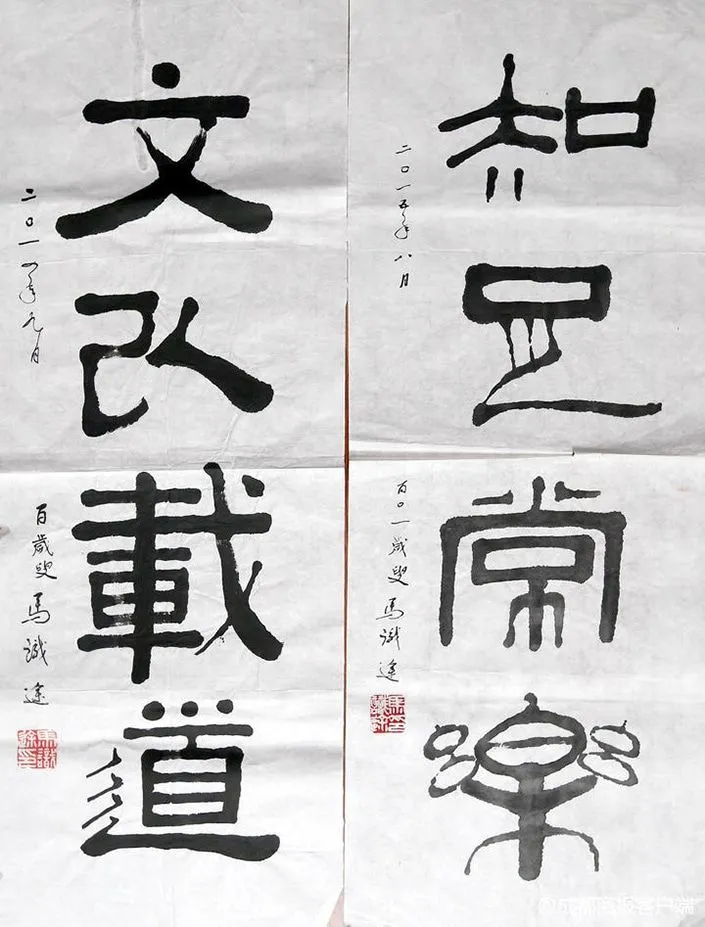 知足常樂
二〇一五年八月
百〇一歲叟 馬識途
文以載道
二〇一四年九月
百歲叟 馬識途
@成都商报客户端